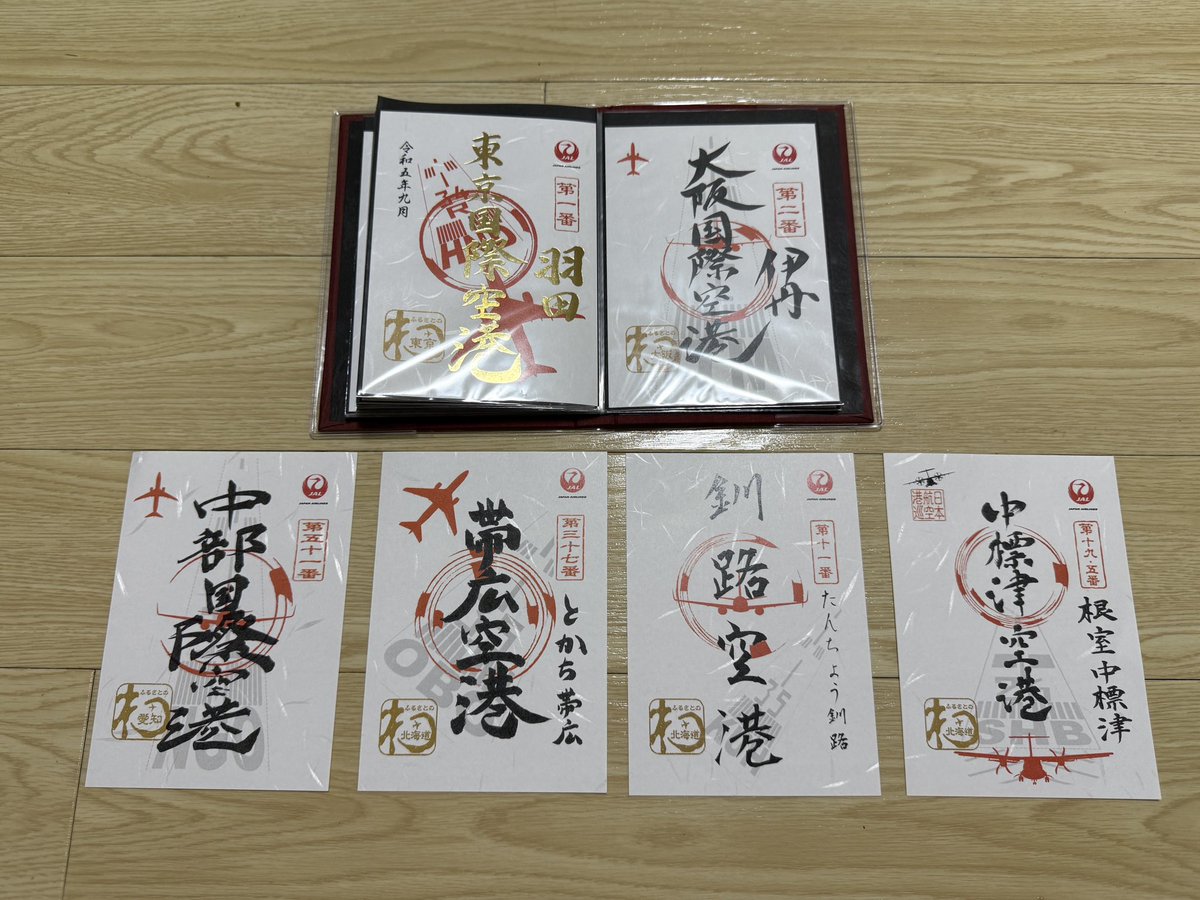 東京国際空港
羽田
令和五年九月
JAL
JAPAN AIRLINES
第一番
ふるさとの
東京
大阪国際空港
伊丹
JAL
JAPAN AIRLINES
第二番
ふるさとの
大阪
中部国際空港
JAL
JAPAN AIRLINES
第五十一番
ふるさとの
愛知
NGO
帯広空港
とかち帯広
JAL
JAPAN AIRLINES
第三十七番
ふるさとの
北海道
OBO
釧路空港
たんちょう釧路
JAL
JAPAN AIRLINES
第十一番
ふるさとの
北海道
中標津空港
根室中標津
JAL
JAPAN AIRLINES
第十九.五番
日本航空港巡
ふるさとの
北海道
SHB